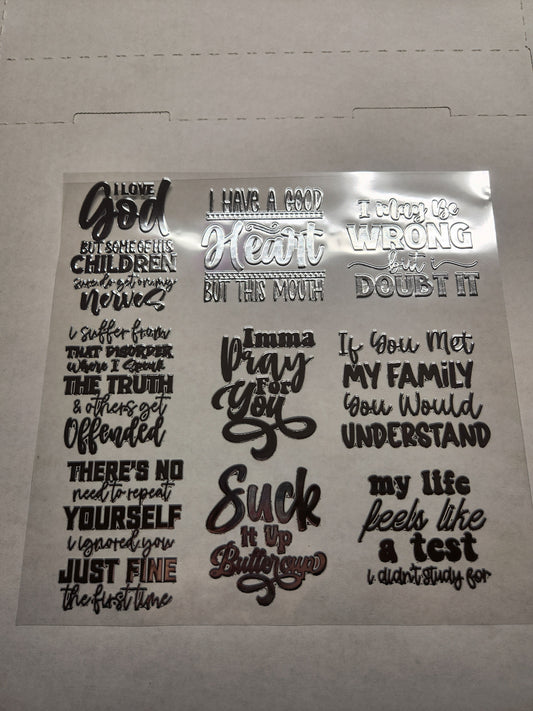 I LOVE
God
BUT SOME OF HIS
CHILDREN
sure do get on my
nerves
I HAVE A GOOD
Heart
BUT THIS MOUTH
I May Be
WRONG
but i
DOUBT IT
i suffer from
THAT DISORDER
where I Speak
THE TRUTH
& others get
Offended
Imma
Pray
For
You
If You Met
MY FAMILY
You Would
UNDERSTAND
THERE'S NO
need to repeat
YOURSELF
i ignored you
JUST FINE
the first time
Suck
It Up
Buttercup
my life
feels like
a test
i didn't study for